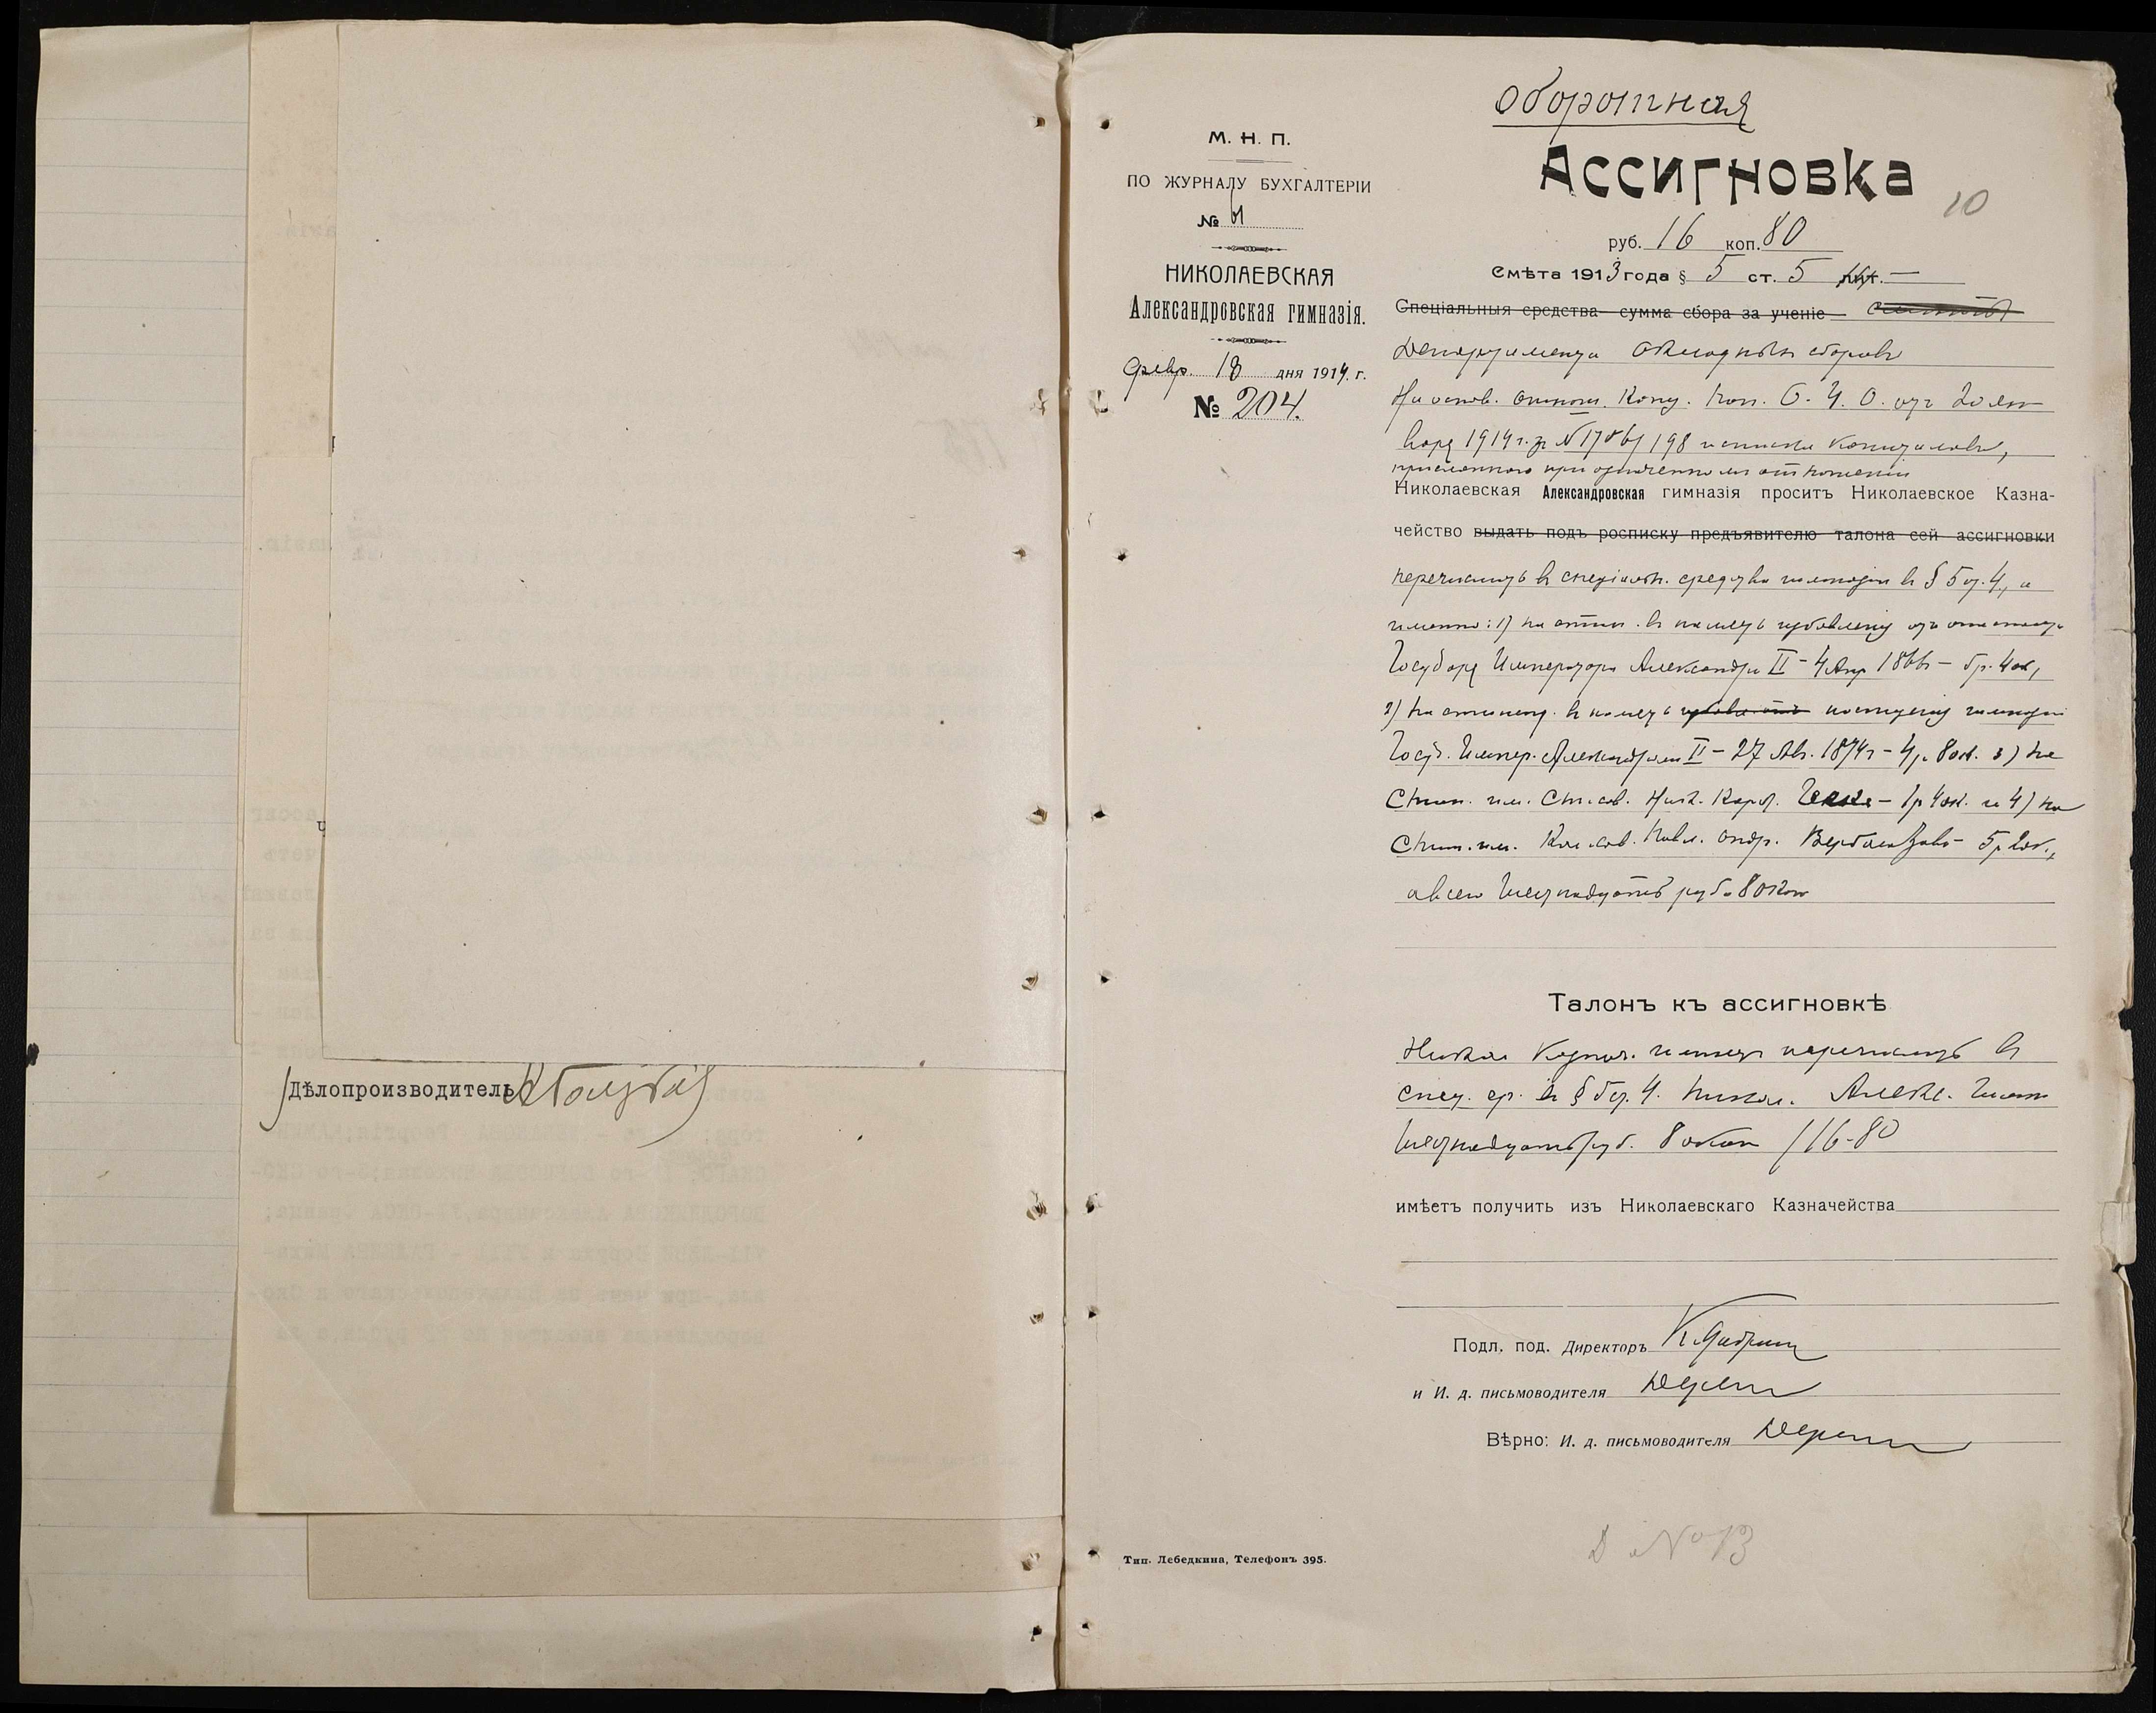 Дѣлопроизводитель
М. Н. П.
ПО ЖУРНАЛУ БУХГАЛТЕРІИ
№ 61
НИКОЛАЕВСКАЯ
Александровская гимназія.
Февр. 18 дня 1914. г.
№ 204.
Тип. Лебедкина, Телефонъ 395.
Оборотная
Ассигновка
10
руб. 16 коп. 80
Смѣта 1913 года § 5 ст. 5 лит. —
Спеціальныя средства сумма сбора за ученіе
Департамента Окладныхъ сборовъ
На основ. отнош. Канц. Поп. О. У. О. отъ 20 Ян-
варя 1914 г. за № 1786/198 и списка капиталовъ,
присланнаго при означенномъ отношеніи
Николаевская Александровская гимназія проситъ Николаевское Казна-
чейство выдать подъ росписку предъявителю талона сей ассигновки
перечислить въ спеціальн. средства гимназіи въ § 5 ст. 4, а
именно: 1) на стип. въ память избавленія отъ опасности
Государя Императора Александра II - 4 Апр 1866 - 5 р. 40 к,
2) на стипенд. въ память посѣщенія гимназіи
Госуд. Импер. Александромъ II - 27 Авг. 1874 г - 4 р. 80 к. 3) на
Стип. им. Ст. сов. Ник. Карл. - 1 р 40 к. и 4) на
Стип. им. сов. Павл. Андр. - 5 р 20 к.,
а всего Шестнадцать руб. 80 коп
Талонъ къ ассигновкѣ
Никол Казнач. имѣетъ перечислить въ
спец. ср. въ § 5 ст. 4. Никол. Алекс. Гимн
Шестнадцать руб. 80 коп /16-80
имѣетъ получить изъ Николаевскаго Казначейства
Подл. под. Директоръ
и И. д. письмоводителя
Вѣрно: И. д. письмоводителя
№ 13